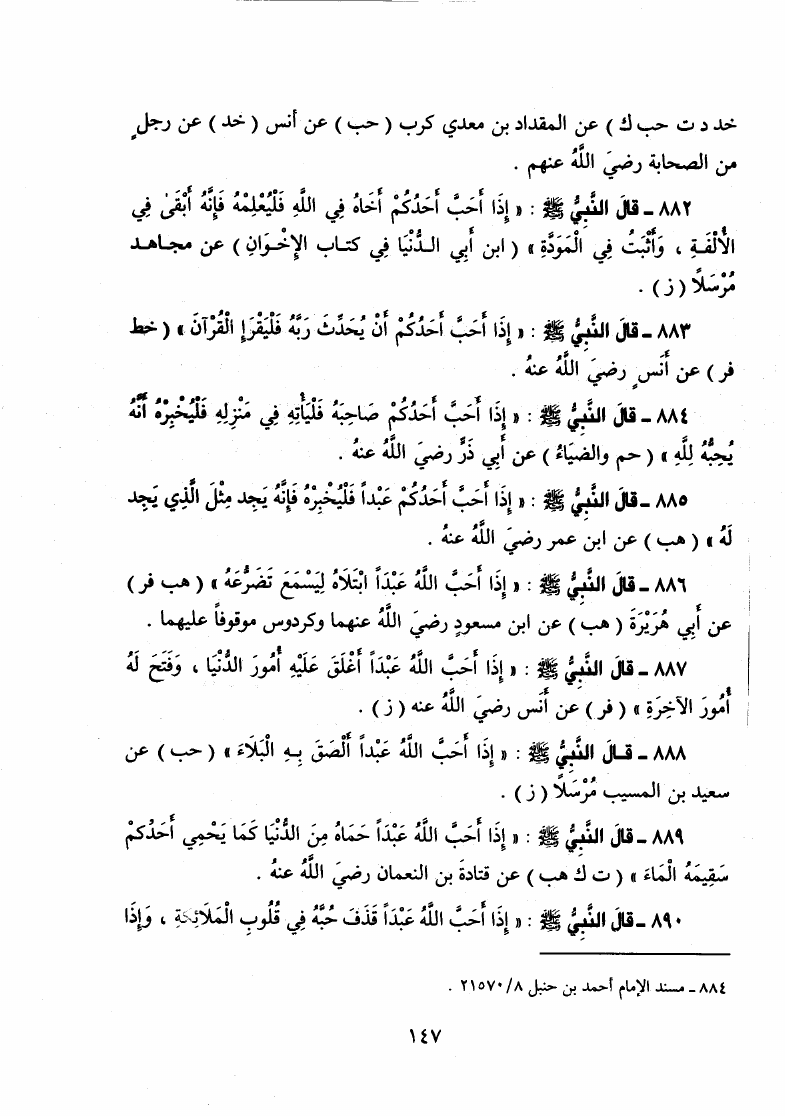 خد د ت حب ك ) عن المقداد بن معدي كرب ( حب ) عن أنس ( خد ) عن رجلٍ
من الصحابة رضيَ اللَّهُ عنهم .
٨٨٢ ـ قالَ النَّبِيُّ ﷺ : « إِذَا أَحَبَّ أَحَدُكُمْ أَخَاهُ فِي اللَّهِ فَلْيُعْلِمْهُ فَإِنَّهُ أَبْقَىٰ فِي
الْأُلْفَةِ ، وَأَثْبَتُ فِي الْمَوَدَّةِ » ( ابن أَبي الـدُّنْيَا فِي كتـاب الإِخْـوَانِ ) عن مجـاهـد
مُرْسَلاً ( ز ) .
٨٨٣ ـ قالَ النَّبِيُّ ﷺ : « إِذَا أَحَبَّ أَحَدُكُمْ أَنْ يُحَدِّثَ رَبَّهُ فَلْيَقْرَإِ الْقُرْآنَ » ( خط
فر ) عن أَنَسٍ رضيَ اللَّهُ عنهُ .
٨٨٤ ـ قالَ النَّبِيُّ ﷺ : « إِذَا أَحَبَّ أَحَدُكُمْ صَاحِبَهُ فَلْيَأْتِهِ فِي مَنْزِلِهِ فَلْيُخْبِرْهُ أَنَّهُ
يُحِبُّهُ لِلَّهِ » ( حم والضيَاءُ ) عن أَبي ذَرٍّ رضيَ اللَّهُ عنهُ .
٨٨٥ ـ قالَ النَّبِيُّ ﷺ : « إِذَا أَحَبَّ أَحَدُكُمْ عَبْداً فَلْيُخْبِرْهُ فَإِنَّهُ يَجِد مِثْلَ الَّذِي يَجِد
لَهُ » ( هب ) عن ابن عمر رضيَ اللَّهُ عنهُ .
٨٨٦ ـ قالَ النَّبِيُّ ﷺ : « إِذَا أَحَبَّ اللَّهُ عَبْدَاً ابْتَلَاهُ لِيَسْمَعَ تَضَرُّعَهُ » ( هب فر )
عن أَبي هُرَيْرَةَ ( هب ) عن ابن مسعودٍ رضيَ اللَّهُ عنهما وكردوس موقوفاً عليهما .
٨٨٧ ـ قالَ النَّبِيُّ ﷺ : « إِذَا أَحَبَّ اللَّهُ عَبْدَاً أَغْلَقَ عَلَيْهِ أُمُورَ الدُّنْيَا ، وَفَتَحَ لَهُ
أُمُورَ الآخِرَةِ » ( فر ) عن أَنَسٍ رضيَ اللَّهُ عنه ( ز ) .
٨٨٨ ـ قـالَ النَّبِيُّ ﷺ : « إِذَا أَحَبَّ اللَّهُ عَبْداً أَلْصَقَ بِـهِ الْبَلَاءَ » ( حب ) عن
سعيد بن المسيب مُرْسَلاً ( ز ) .
٨٨٩ ـ قالَ النَّبِيُّ ﷺ : « إِذَا أَحَبَّ اللَّهُ عَبْدَاً حَمَاهُ مِنَ الدُّنْيَا كَمَا يَحْمِي أَحَدُكُمْ
سَقِيمَهُ الْمَاءَ » ( ت ك هب ) عن قتادةَ بن النعمان رضيَ اللَّهُ عنهُ .
٨٩٠ ـ قالَ النَّبِيُّ ﷺ : « إِذَا أَحَبَّ اللَّهُ عَبْدَاً قَذَفَ حُبَّهُ فِي قُلُوبِ الْمَلَائِكَةِ ، وَإِذَا
٨٨٤ ـ مسند الإمام أحمد بن حنبل ٢١٥٧٠/٨ .
١٤٧